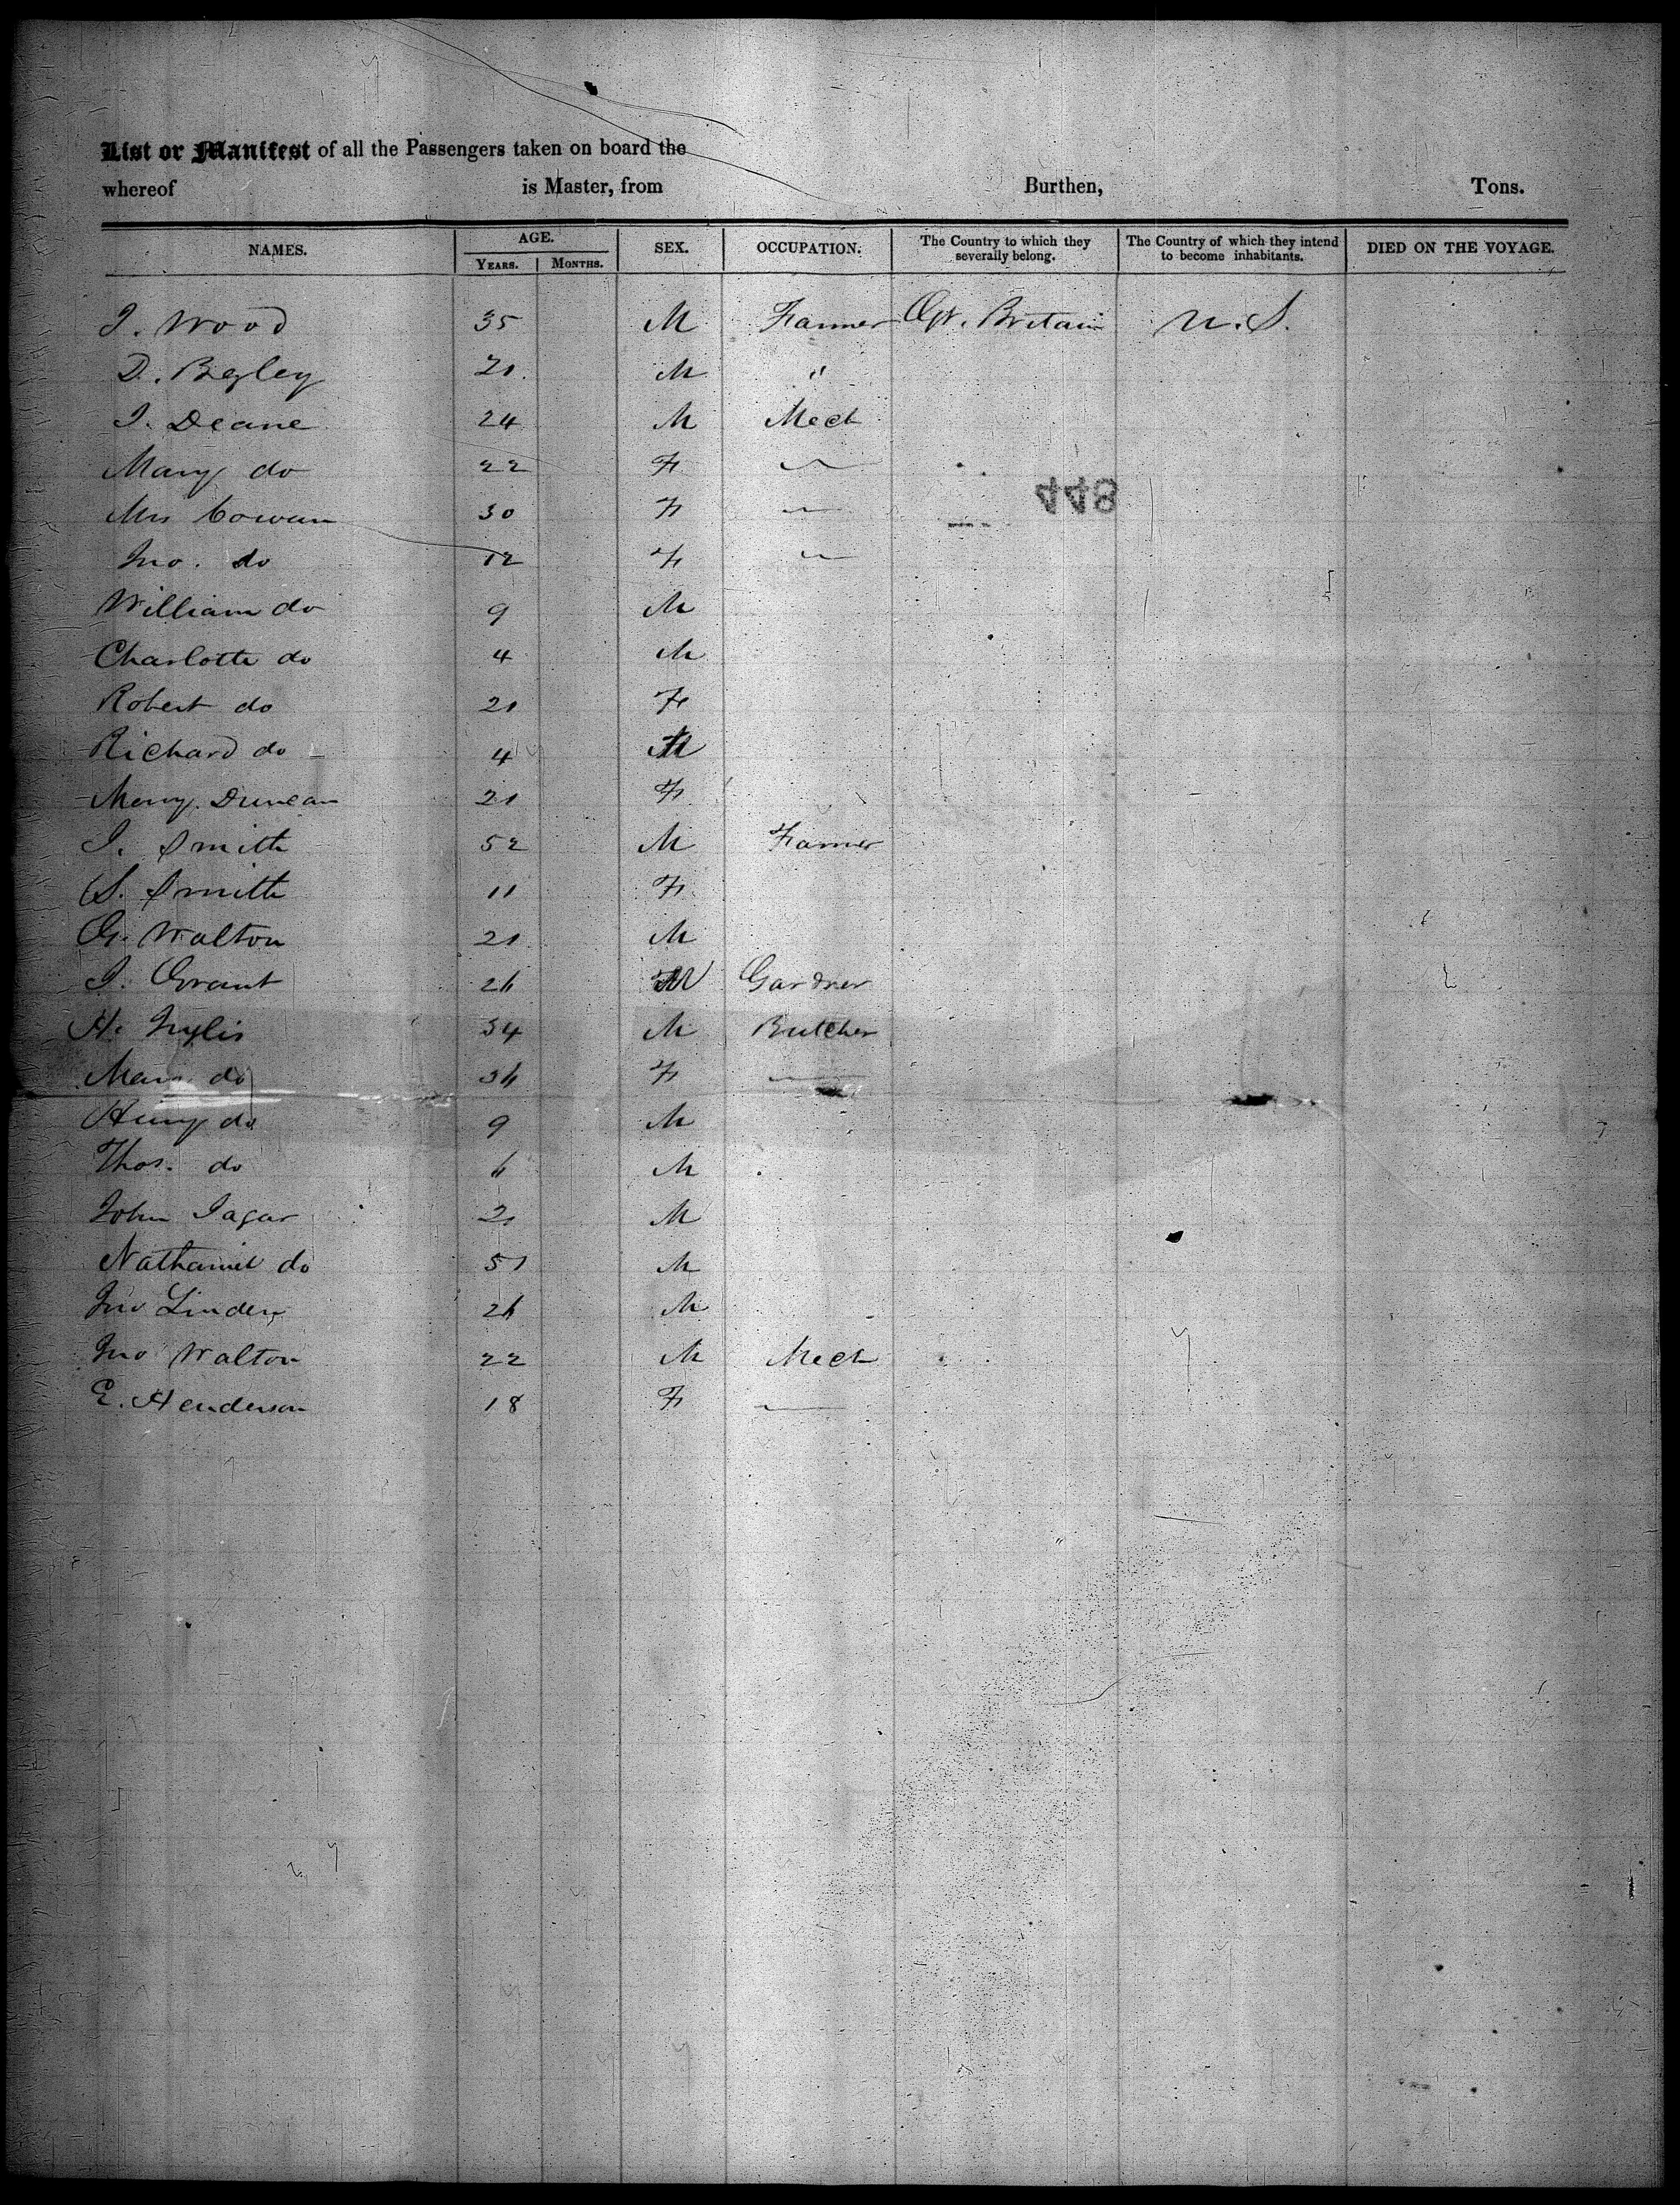 List or Manifest of all the Passengers taken on board the
whereof is Master, from Burthen, Tons.
NAMES. AGE. SEX. OCCUPATION. The Country to which they severally belong. The Country of which they intend to become inhabitants. DIED ON THE VOYAGE.
YEARS. MONTHS.
J. Wood 35 M Farmer Gt. Britain U.S.
D. Begley 21 M "
J. Deane 24 M Mech
Mary do 22 F
448
Mrs Cowan 30 F
Jno. do 12 F
William do 9 M
Charlotte do 4 M
Robert do 21 F
Richard do 4 M
Mary Duncan 21 F
J. Smith 52 M Farmer
S. Smith 11 F
G. Walton 21 M
J. Grant 26 M Gardner
H. Inglis 34 M Butcher
Mary do 36 F
Henry do 9 M
Thos. do 6 M
John Jagar 21 M
Nathaniel do 51 M
Jno Linden 26 M
Jno Walton 22 M Mech
E. Henderson 18 F